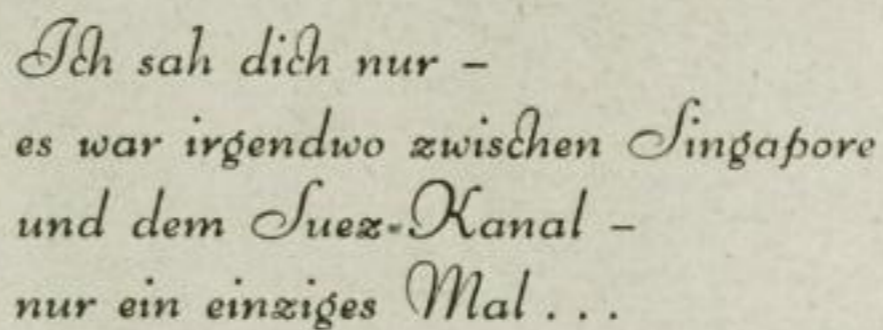 Ich sah dich nur –
es war irgendwo zwischen Singapore
und dem Suez-Kanal –
nur ein einziges Mal . . .